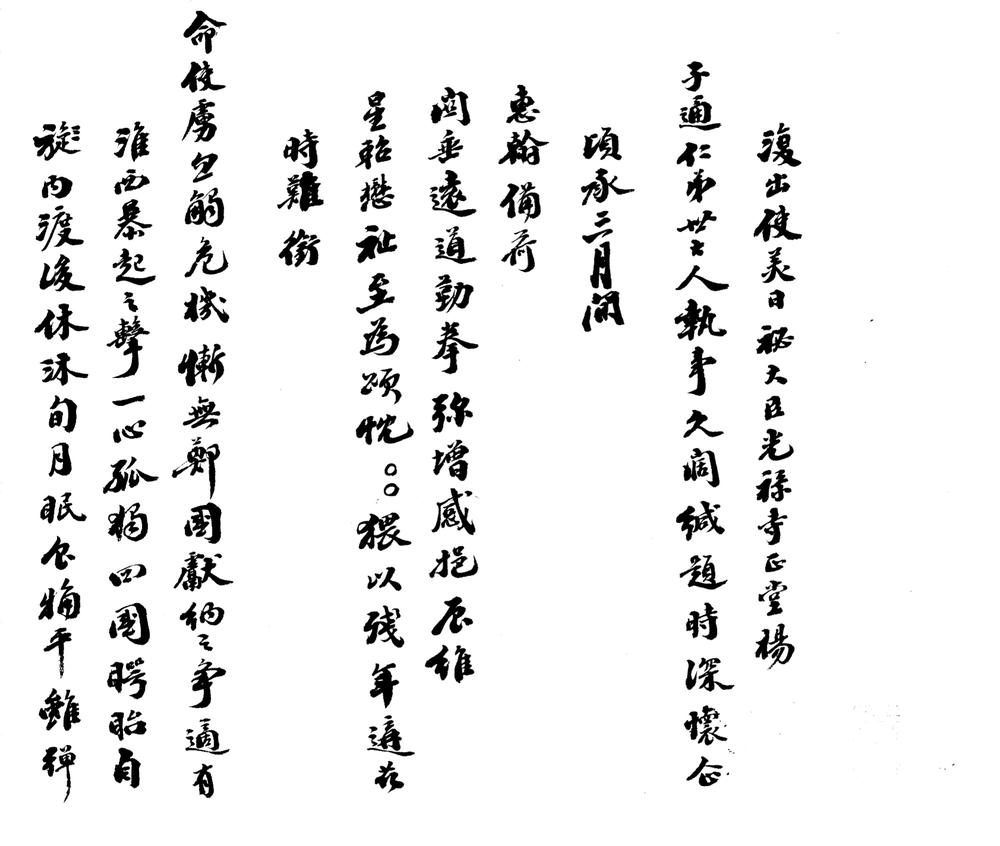 復出使美日秘大臣光祿寺正堂楊
子通仁弟世大人執事久闊緘題時深懷企
頃承三月間
惠翰備荷
關垂遠道勤拳彌增感挹辰維
星軺懋祉至為頌忱○○猥以殘年遘茲
時難銜
命使虜忽觸危機慚無鄭國獻納之爭適有
淮西暴起之擊一心孤獨四國瞪眙自
旋內渡後休沐旬月眠食獨平雖彈